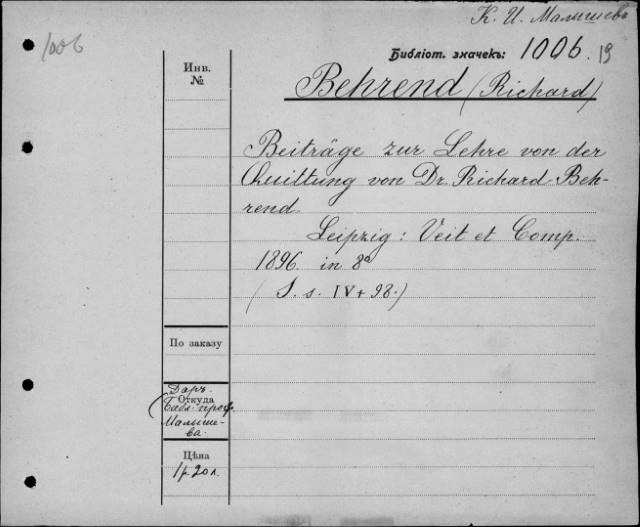 К. И. Малышевъ
1006
Библіот. значекъ: 1006. 19
Инв.
№
Behrend (Richard)
Beiträge zur Lehre von der
Quittung von Dr. Richard Beh-
rend.
Leipzig: Veit et Comp.
1896. in 8º
(S. s. IV + 98.)
По заказу
Даръ.
Откуда
(Библ. проф.
Малыше-
ва.
Цѣна
1 р. 20 к.